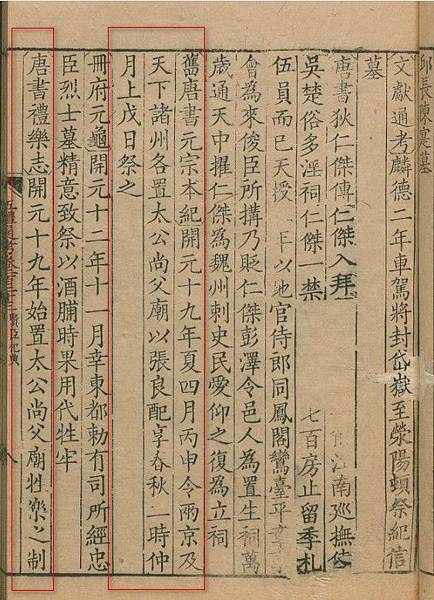 長陳寔墓
文獻通考麟德二年車駕將封岱嶽至滎陽頓祭紀信
墓
唐書狄仁傑傳仁傑入拜江南廵撫使
吳楚俗多淫祠仁傑一禁七百房止留季札
伍員而已天授年以地官侍郎同鳳閣鸞臺平
會為來俊臣所搆乃貶仁傑彭澤令邑人為置生祠萬
歲通天中擢仁傑為魏州刺史民愛仰之復為立祠
舊唐書元宗本紀開元十九年夏四月丙申令兩京及
天下諸州各置太公尚父廟以張良配享春秋一時仲
月上戊日祭之
冊府元龜開元十二年十一月幸東都勅有司所經忠
臣烈士墓精意致祭以酒脯時果用代牲牢
唐書禮樂志開元十九年始置太公尚父廟牲樂之制
五禮通考卷一百二十二 賢臣祀典 八